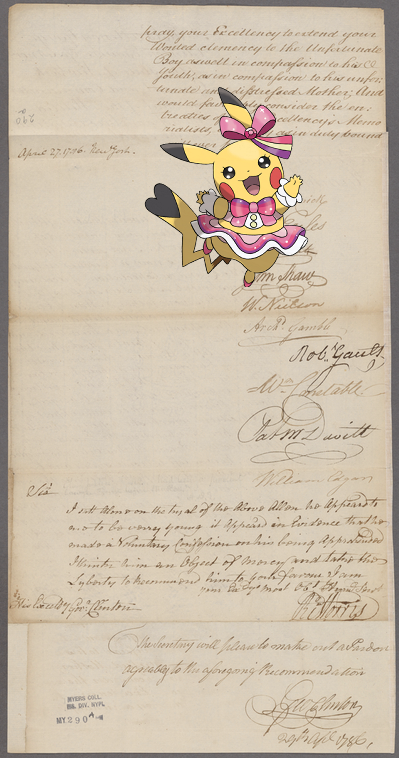 pray, your Excellency to extend your
Wonted clemency to the Unfortunate
Boy aswell in compassion to his
Youth, as in compassion to his unfor-
tunate and distressed Mother; And
would consider the en-
treaties Excellency's Memo
rialists, as in duty bound
April 27. 1786. New York.
Shaw
W. Neilson
Archd. Gamble
Robt. Gault
Wm. Constable
Pat McDavitt
William Edgar
Sir
I sett alone on the tryal of the above Allen he Appears to
me to be verry young it appeard in Evidence that he
made a Voluntary Confession on his being Apprehended
I think him an Object of mercy and take the
Lyberty to Recommend him to your favour I am
your Excy's most Obt. Humb. Servt
Rd. Morris
His Excelly Govr. Clinton
The Secretary will please to make out a Pardon
agreeably to the aforegoing Recommendation
Geo. Clinton
29th Apl. 1786.
MYERS COLL.
MS. DIV. NYPL
MY 290
290